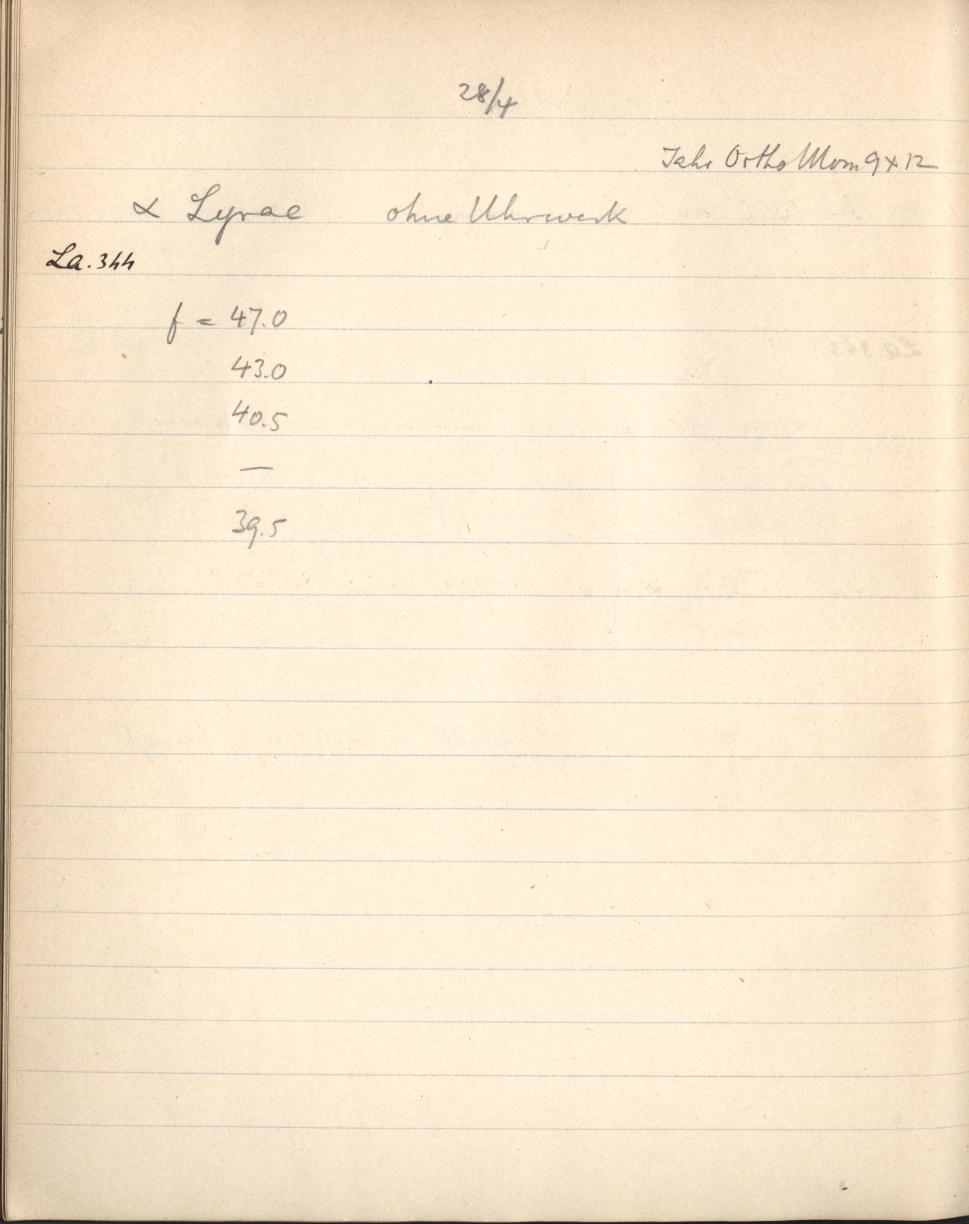 28/4
Jahr Ortho Mom 9 x 12
α Lyrae ohne Uhrwerk
La. 344
f = 47.0
43.0
40.5
—
39.5